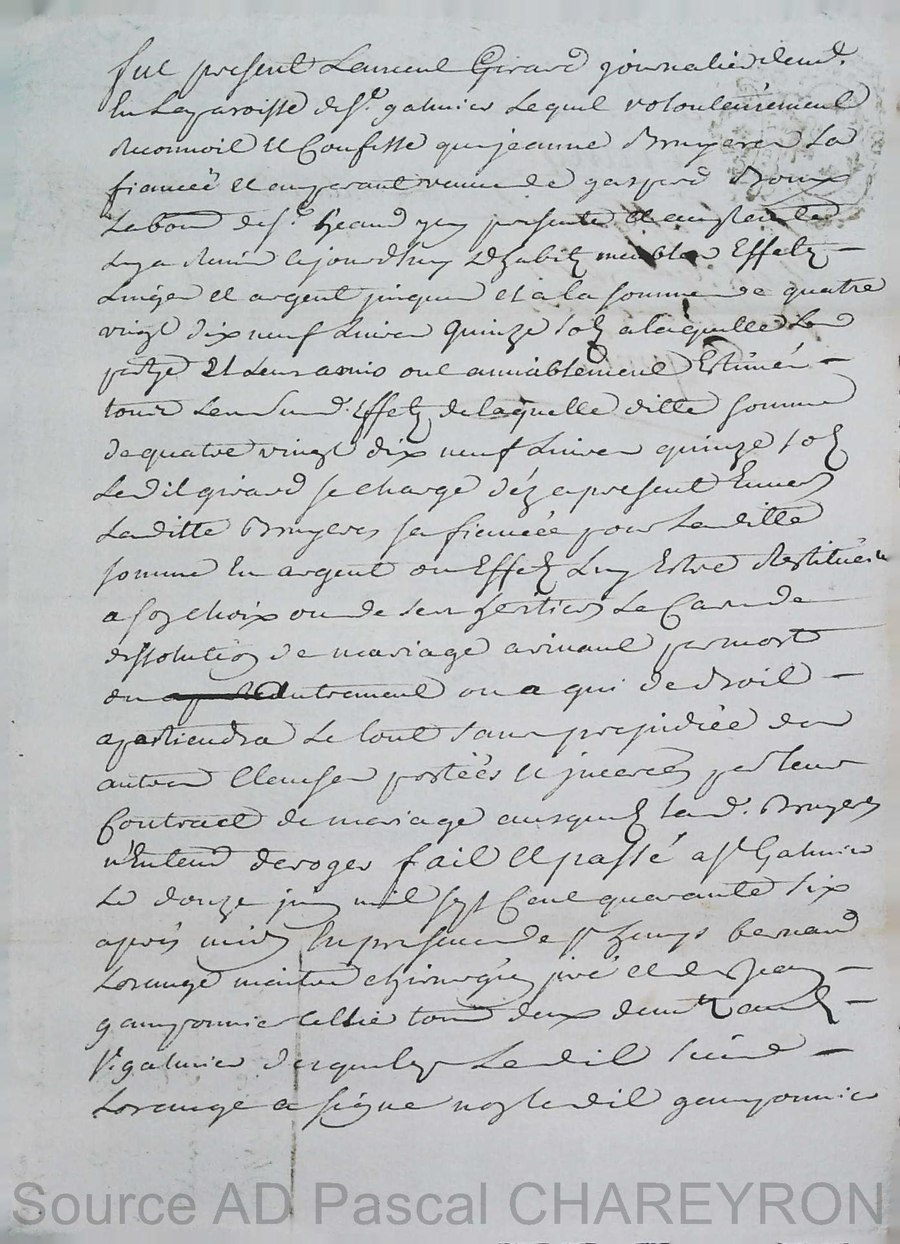 fut present Laurent Girard journalié demt.
En La paroisse de St. galmier Lequel volontairement
Reconnoit Et Confesse que jeanne Bruyeres La
fiancée Et auparavant veuve de gaspard Roux
presente Et acceptante
Luy a Remis cejourd'huy Dhabitz meubles Effetz
Linges et argent jusques et a la somme de quatre
vingt dix neuf Livres quinze solz a laquelle Les
partye Et Leurs amis ont amiablement Estimés
tous Lesd. Effetz de laquelle ditte somme
de quatre vingt dix neuf Livres quinze solz
Ledit girard se charge déz apresent Envers
Laditte Bruyeres sa fiancée pour Laditte
somme En argent ou Effetz Luy Estre Restituée
a son choix ou de ses hertiers Le Cas de
dissolution de mariage arrivant par mort
ou autrement ou a qui de droit
apartiendra Le tout sans prejudice des
autres Clauses portées et inserées par leur
Contract de mariage ausquelz lad. Bruyeres
n'Entend deroger fait Et passé a St. Galmier
Le douze juin mil sept Cent quarante six
apres midy En presence de Sr. bernard
Lorange maitre chirurgien juré et de Jean
gauyonnier tous deux demtz aud.
St. galmier desquelz Ledit Sieur
Lorange a signé non Ledit gauyonnier
Source AD Pascal CHAREYRON